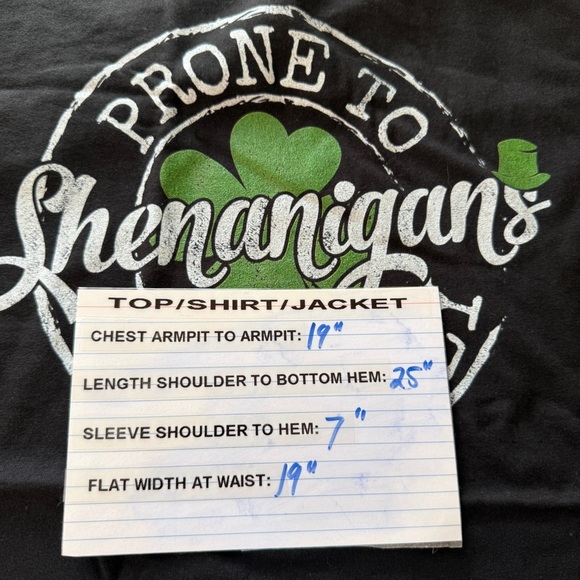 PRONE TO
Shenanigans
TOP/SHIRT/JACKET
CHEST ARMPIT TO ARMPIT: 19"
LENGTH SHOULDER TO BOTTOM HEM: 25"
SLEEVE SHOULDER TO HEM: 7"
FLAT WIDTH AT WAIST: 19"